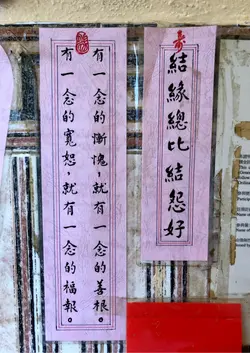 結緣總比結怨好
有一念的慚愧，就有一念的善根。
有一念的寬恕，就有一念的福報。